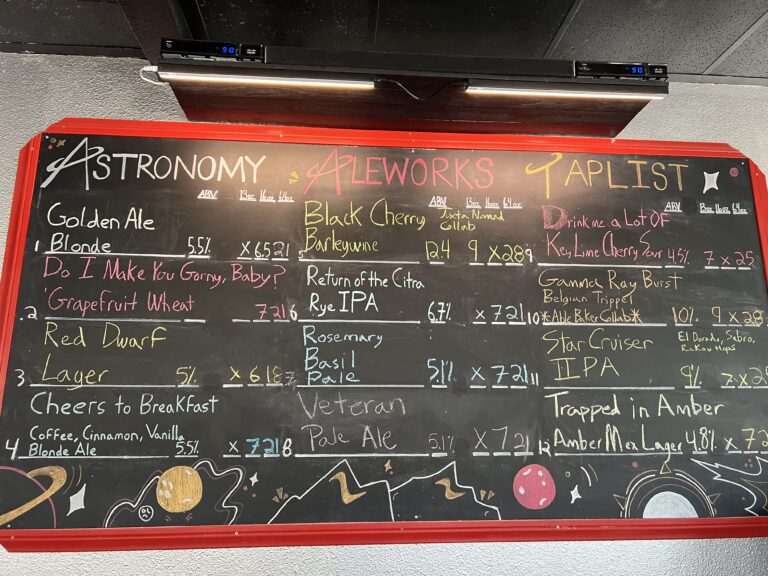 ASTRONOMY ALEWORKS TAPLIST
ABV 13oz 16oz 64oz
Golden Ale
1 Blonde 5.5% X 6.5 21
Do I Make You Gorny, Baby?
2 Grapefruit Wheat 7 21
Red Dwarf
3 Lager 5% X 6 18
Cheers to Breakfast
Coffee, Cinnamon, Vanilla
4 Blonde Ale 5.5% X 7 21
ABV 13oz 16oz 64oz
Black Cherry Juxta Nomad
Collab
5 Barleywine 12.4 9 X 28
Return of the Citra
6 Rye IPA 6.7% X 7 21
Rosemary
Basil
7 Pale 5.1% X 7 21
Veteran
8 Pale Ale 5.1% X 7 21
ABV 13oz 16oz 64oz
Drink me a Lot OF
9 Key Lime Cherry Sour 4.5% 7 X 25
Gamma Ray Burst
Belgian Trippel
10 *Able Baker Collab* 10% 9 X 28
Star Cruiser El Dorado, Sabro,
Rakau Hops
11 IIPA 9% 7 X 2
Trapped in Amber
12 Amber Mex Lager 4.8% X 7 2